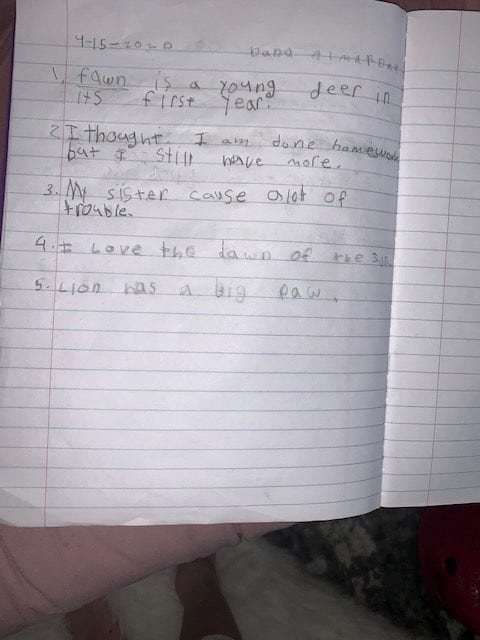 4-15-2020 Dana
1. fawn is a young deer in
its first year.
2. I thought I am done homework
but I still have more.
3. My sister cause alot of
trouble.
4. I Love the dawn of the sun
5. Lion has a big paw.